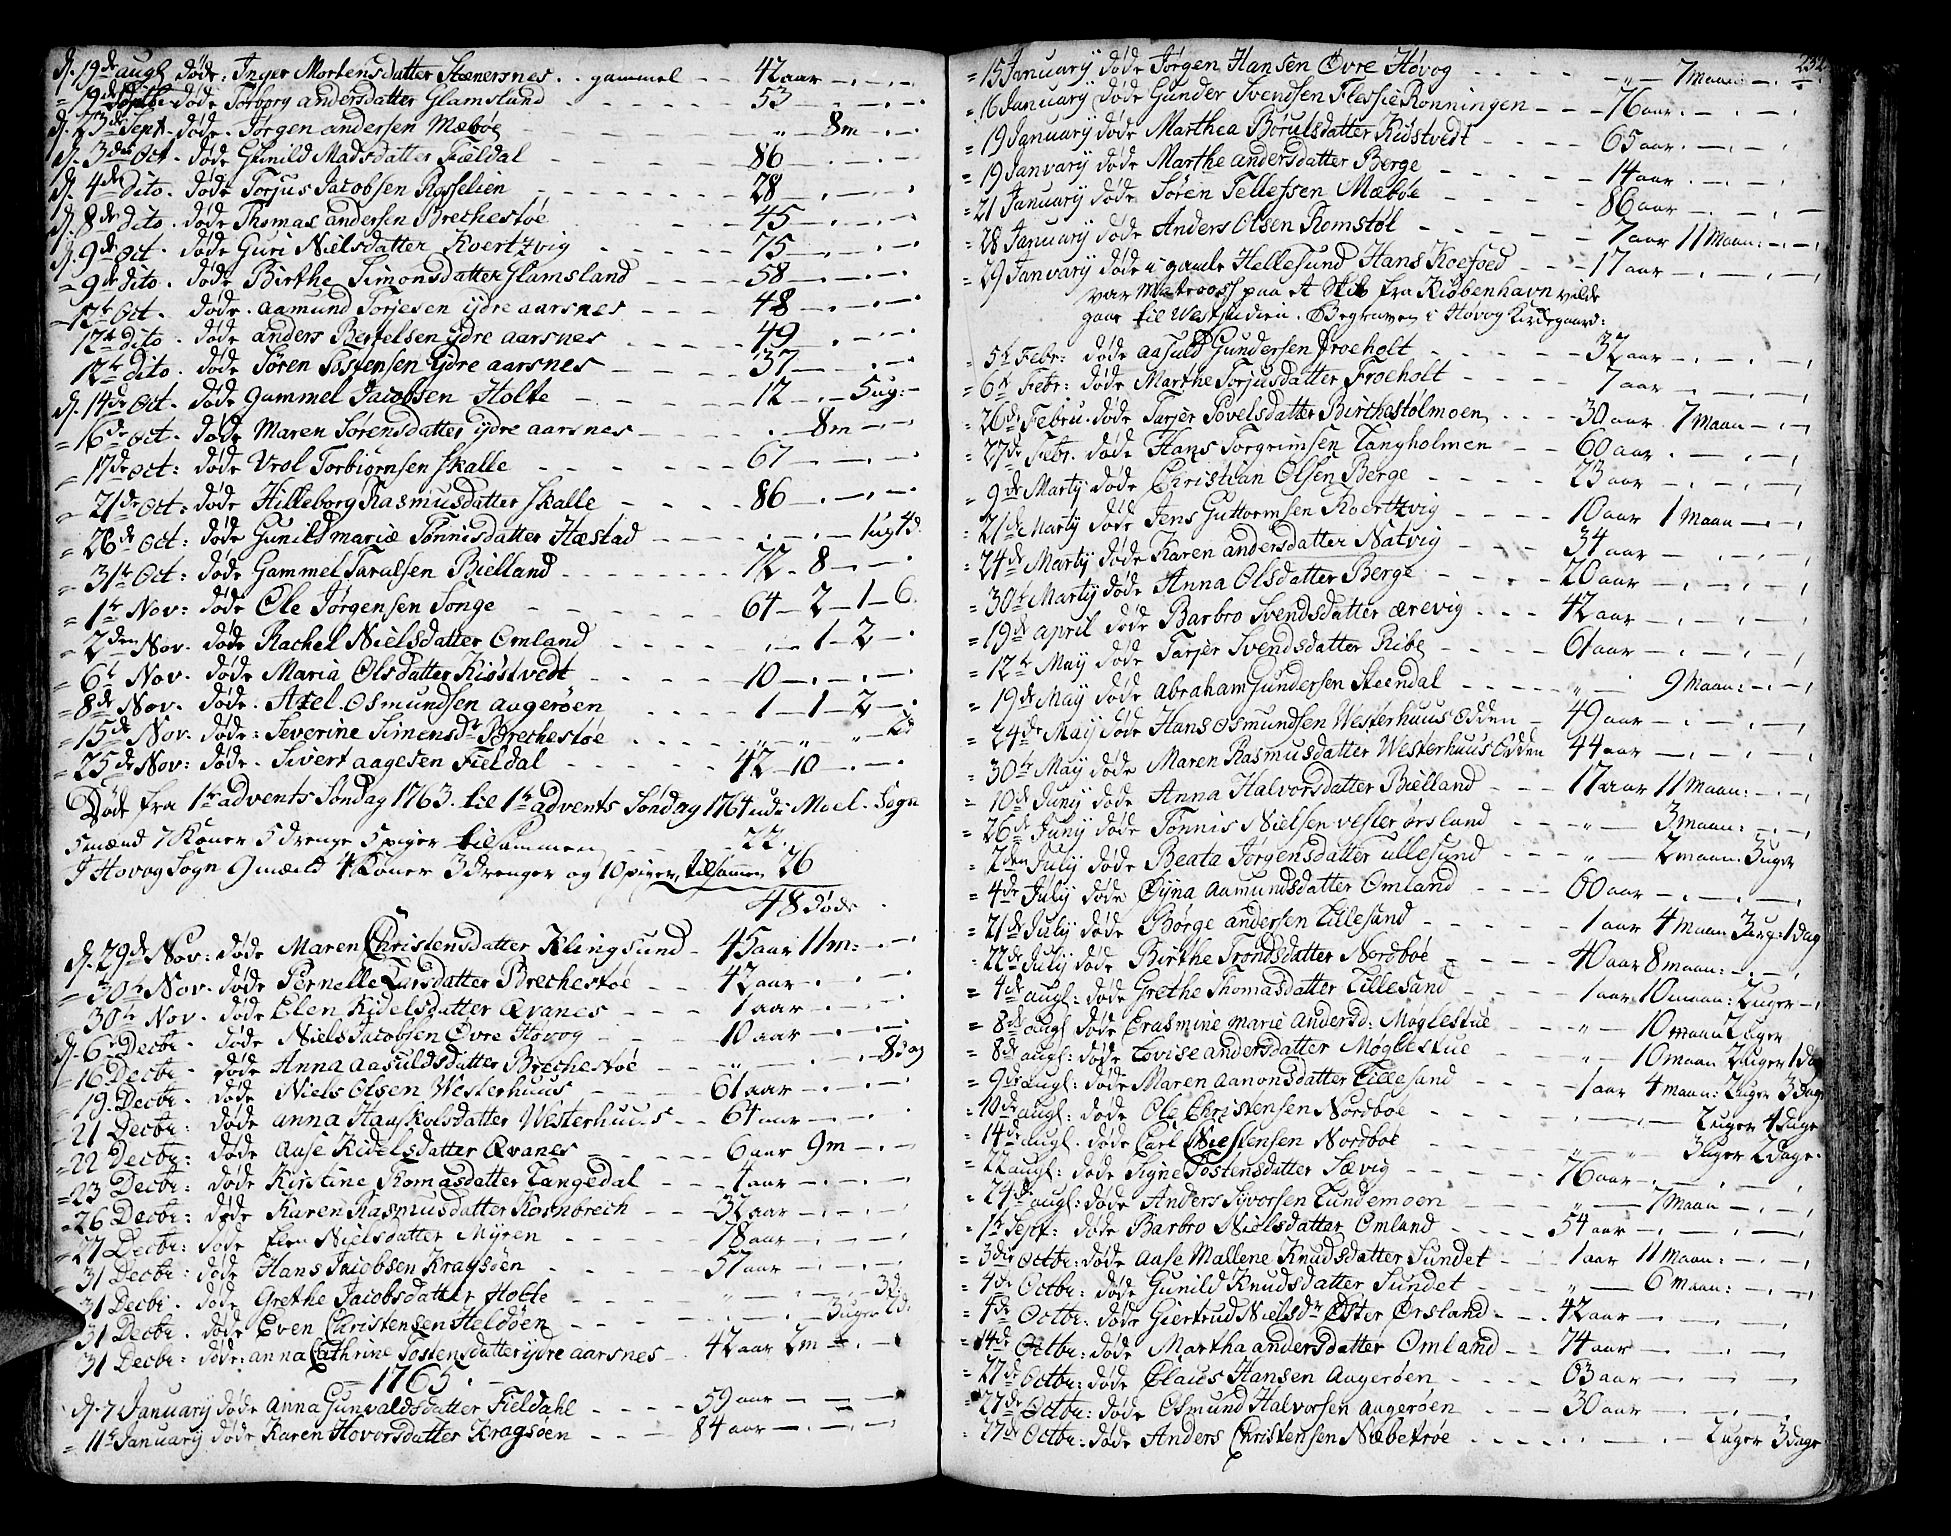 d. 19de augl døde: Inger Mortensdatter Stenersnes . . gammel - - 42 aar - . - . -
= 19de Septbr døde Torborg andersdatter Glamsland - - - - 53 - . - . -
d. 23de Sept. døde. Jørgen andersen Mæbøe - - - - „ - 8m - . -
d. 3die Oct. døde Gunild Madsdatter Fieldal - - - - 86 - . - . -
d. 4de dito. døde Torjus Jacobsen Rosselien - - - - 28 - . - . -
d. 8de dito. døde Thomas andersen Brechestøe - - - - 45 - . - . -
d. 9de Oct. døde Guri Nielsdatter Kvertzvig - - - - 75 - . - . -
= 9de dito. døde Birthe Simonsdatter Glamsland - - - - 58 - . - . -
= 12te Oct. døde. aamund Torjesen ydre aarsnes - - - - 48 - . - . -
12te dito. døde anders Bertelsen ydre aarsnes - - - - 49 - . - . -
12te dito. døde Søren Tostensen ydre aarsnes - - - - 37 - . - . -
d. 14de Oct. døde Gammel Jacobsen Holte - - - - 12 - . - 5 ug:
= 16de Oct. døde Maren Sørensdatter ydre aarsnes - - - - . - 8m - . -
= 17de oct: døde Vrol Torbiørnsen Skalle - - - - 67 - . - . -
= 21de Oct: døde Hilleborg Rasmusdatter Skalle - - - - 86 - . - . -
= 26de Oct: døde Gunild marie Tønnisdatter Hæstad - - - - . - . - 1 ug 4d.
= 31te Oct: døde Gammel Taralsen Bielland - - - - 72 - 8 - . - .
= 1te Nov: døde Ole Jørgensen Songe - - - - 64 - 2 - 1 - 6.
= 2den Nov. døde Rachel Nielsdatter Omland - - - - . - 1 - 2 - .
= 6te Nov. døde Maria Olsdatter Kiøstvedt - - - - 10 - . - . - .
= 8de Nov. døde. Axel Osmundsen augerøen - - - - 1 - 1 - 2 - .
= 15de Nov. døde: Severine Simensdr Brechestøe - - - - „ „ „ - 2d
= 25de Nov: døde. Sivert aagesen Fieldal - - - - 42 - 10 - . - .
Døde fra 1te advents Søndag 1763. til 1te advents Søndag 1764 udi Moel. Sogn
5 mænd 7 Koner 5 drenge 5 piger tilsammen - - - - 22.
I Hovog Sogn 9 mænd 4 Koner 3 drenger og 10 piger, tilsamen 26
48 døde.
d. 29de Nov: døde Maren Christensdatter Klingsund - 45 aar 11m: - . -
= 30te Nov. døde Pernelle Larsdatter Brechestøe - - 42 aar - . - . -
= 30te Nov. døde Elen Kidelsdatter Qvanes - - - 1 aar - . - . -
d. 6te Decbr. døde Niels Jacobsen Øvre Hovog - - - 10 aar - . - . -
= 16 Decbr. døde Anna aasuldsdatter Brechestøe - - - „ - . - . - 8 dag
= 19. Decbr. døde Niels Olsen Westerhuus - - - - 61 aar - . - . -
= 21 Decbr. døde anna Haaskolsdatter Westerhuus - - 64 aar - . - . -
= 22 Decbr: døde Aase Kidelsdatter Qvanes - - - - 6 aar 9m - . -
= 23 Decbr: døde Kirstine Tomasdatter Tangedal - - - 4 aar - . - . -
= 26 Decbr: døde Karen Rasmusdatter Kosnbrech - - - 32 aar - . - . -
= 27 Decbr: døde Elen Nielsdatter Myren - - - - 78 aar - . - . -
= 31 Decbr: døde Hans Jacobsen Kragsøen - - - - 57 aar - . - . -
= 31 Decbr. døde Grethe Jacobsdatter Holte - - - - „ - . - . - 3d
31 Decbr. døde Even Christensen Heldøen - - - - . - . - 3 uger 2d:
31 Decbr: døde: anna Cathrine Tostensdatter ydre aarsnes - 42 aar 2m - . -
= 1765. =
d. 7 January døde Anna Gunvaldsdatter Fieldahl - - - - 59 aar - - - -
= 11te January døde Karen Hovorsdatter Kragsøen - - - 84 aar - . - . -
232
= 15 January døde Jørgen Hansen Øvre Høvog - - - - - „ - 7 maan: - . -
= 16 January døde Gunder Svendsen Flessie Rønningen - - - 76 aar. - . - .
= 19 January døde Marthea Børulsdatter Kiøstvedt - - - - 65 aar. - . - .
= 19 January døde Marthe andersdatter Berge - - - - - 14 aar . - . - .
= 21 January døde Søren Tellefsen Mæbøe - - - - - 86 aar - . - . -
= 28 January døde Anders Olsen Romstøl - - - - - 7 aar 11 Maan: - . -
= 29 January døde i gamle Hellesund Hans Koefoed - - - 17 aar - . - . -
var Matrooss paa et Skib fra Kiøbenhavn vilde
gaae til Westindien. Begraven i Høvog Kirkegaard:
= 5te Febr: døde aasuld Gundersen Froeholt - - - - - 32 aar - . - . -
= 6te Febr: døde Marthe Torjusdatter Froeholt - - - - 7 aar - . - . -
= 26de Febru. døde Tarjer Povelsdatter Birthestølmoen - - - 30 aar 7 Maan - . -
= 27de Febr. døde Hans Torgrimsen Tangholmen - - 60 aar . - . - .
= 9de Marty døde Christian Olsen Berge - - - - - 23 aar - . - . -
= 21de Marty døde Jens Guttormsen Koertzvig - - - - 10 aar 1 Maan - . -
= 24de Marty døde Karen andersdatter Natvig - - - - 34 aar - . - . -
= 30te Marty døde Anna Olsdatter Berge - - - - 20 aar - . - . -
= 19de april døde Barbro Svendsdatter ærevig - - - 42 aar - . - . -
= 12te May døde Tarjer Svendsdatter Ribe - - - - 61 aar - . - . -
= 19de May døde abraham Gundersen Steendal - - - - „ - 9 Maan: - . -
= 24de May døde Hans Osmundsen Westerhuus Edden - 49 aar - . - . -
= 30te May døde Maren Rasmusdatter Westerhuus Edden 44 aar - . - . -
= 10de Juny døde Anna Halvorsdatter Bielland - - - 17 aar 11 Maan: - . -
= 26de Juny døde Tønnis Nielsen vester ørsland - - - „ - 3 maan: - . -
= 2den July døde Beata Jørgensdatter ullesund - - - „ - 2 maan: 3 uger
= 4de July døde Øyna aamundsdatter Omland - - - - 60 aar - . - . -
= 21de July døde Børge andersen Lillesand - - - - 1 aar 4 maan 3 ug: 1 dag
. 22de July døde Birthe Trondsdatter Nordbøe - - - - 40 aar 8 maan: - . -
= 4de augl: døde Grethe Thomasdatter Lillesand - - - - 1 aar 10 maan: 2 uger -
= 8de augl: døde Erasmine marie andersd: Møglestue - - - „ - 10 maan 2 uger
= 8de augl: døde Lovise andersdatter Møglestue - - - „ - 10 maan 2 uger 1 dag
= 9de augl: døde Maren aanonsdatter Lillesand - - - - 1 aar 4 maan: 2 uger 3 dage
= 10de augl: døde Ole Christensen Nordbøe - - - - . . - . 2 uger 4 dage
= 14de augl. døde Carl Nielsen Nordbøe - - - - „ - „ 3 uger 2 dage.
= 22 augl: døde Signe Tostensdatter Sævig - - - - 76 aar - . - . -
= 24de augl: døde Anders Syvorsen Lundemoen - - - - „ - 7 maan - . -
= 1te Sept: døde Barbro Nielsdatter Omland - - - - 54 aar - . - . -
= 3die Octbr: døde Aase Mallene Knudsdatter Sundet - - - 1 aar 11 maan: - . -
= 4de Octbr: døde Gunild Knudsdatter Sundet - - - - „ - 6 maan: - . -
= 4de Octbr: døde Giertrud Nielsdr Øster Ørsland - - - 42 aar - . - . -
= 14de Octbr: døde Martha andersdatter Omland - - 74 aar - . - . -
= 27de Octbr: døde Claus Hansen Augerøen - - - - 63 aar - . - . -
= 27de Octbr: døde Osmund Halvorsen augerøen - - - 30 aar - . - . -
. 27de Octbr: døde Anders Christensen Næbekrøe - - - - . . - . - 2 uger 3 dage